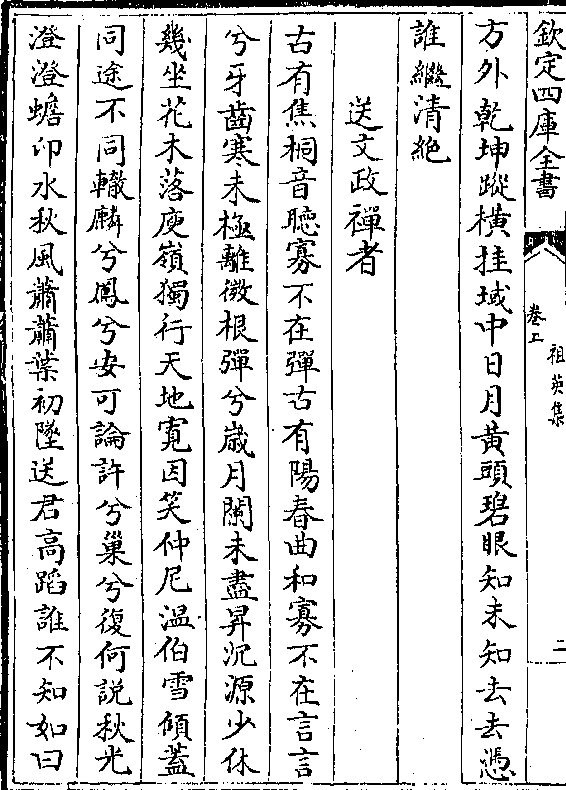 欽定四庫全書
祖英集
卷上
二
方外乾坤蹤橫挂域中日月黃頭碧眼知未知去去憑
誰繼清絶
送文政禪者
古有焦桐音聽寡不在彈古有陽春曲和寡不在言言
兮牙齒寒未極離微根彈兮歲月闌未盡昇沉源少休
幾坐花木落庾嶺獨行天地寛因笑仲尼温伯雪傾蓋
同途不同轍麟兮鳳兮安可論許兮巢兮復何説秋光
澄澄蟾印水秋風蕭蕭葉初墜送君高蹈誰不知如曰